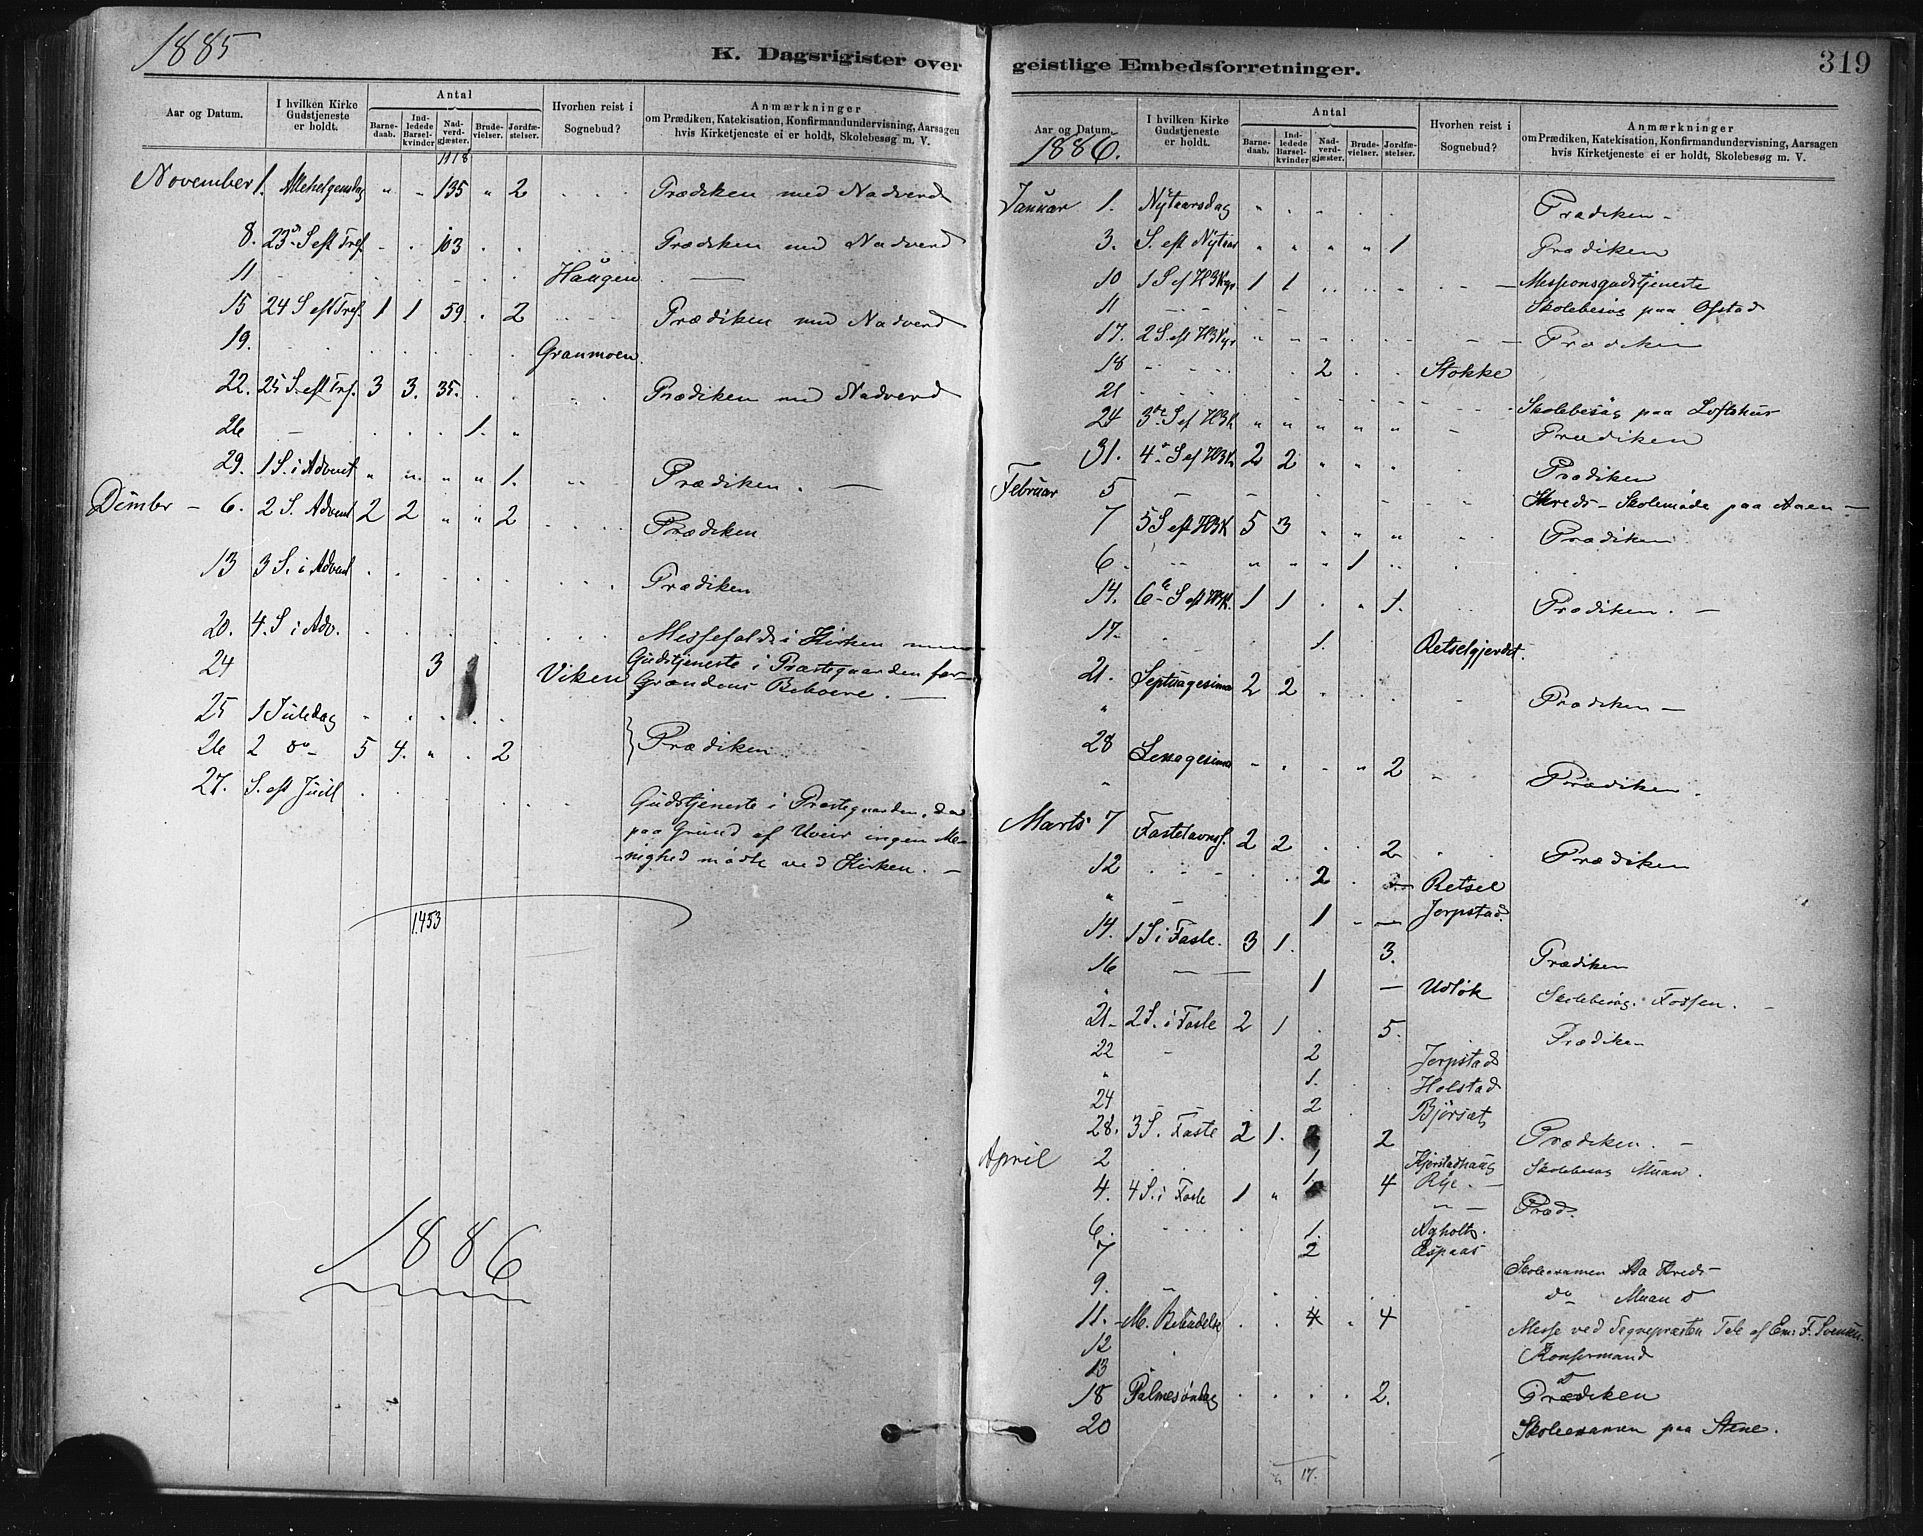 1885
K. Dagsrigister over
Aar og Datum. | I hvilken Kirke Gudstjeneste er holdt. | Antal | Barnedaab. | Indledede Barselkvinder | Nadverdgjæster. | Brudevielser. | Jordfæstelser. | Hvorhen reist i Sognebud? | Anmærkninger om Prædiken, Katekisation, Konfirmandundervisning, Aarsagen hvis Kirketjeneste ei er holdt, Skolebesøg m. V.
1118
November 1. Allehelgensdag " - 135 " 2 Prædiken med Nadverd
8. 23de S eft Tref. 103 Prædiken med Nadverd
11 Haugen
15 24 S eft Tref. 1 1 59. 2 Prædiken med Nadverd
19. Granmoen.
22. 25 S. eft Tref. 3 3. 35. Prædiken med Nadverd
26 1. "
29. 1 S. i Advent " " " " 1. Prædiken. —
Dcmber - 6. 2 S. Advent 2 2 " " 2 Prædiken
13 3 S. i Advent Prædiken
20. 4. S i Adv. Messefald i Kirken men
24 3 Viken Gudstjeneste i Præstegaarden for
Grændens Beboere. —
25 1 Juledag
26 2 do 5 4. " 2 Prædiken
27. S. eft Juul Gudstjeneste i Præstegaarden, da
paa Grund af Uveir ingen Me-
-nighed mødte ved Kirken. —
1453
1886
geistlige Embedsforretninger.
319
Aar og Datum. | I hvilken Kirke Gudstjeneste er holdt. | Antal | Barnedaab. | Indledede Barselkvinder | Nadverdgjæster. | Brudevielser. | Jordfæstelser. | Hvorhen reist i Sognebud? | Anmærkninger om Prædiken, Katekisation, Konfirmandundervisning, Aarsagen hvis Kirketjeneste ei er holdt, Skolebesøg m. V.
1886.
Januar 1. Nytaarsdag Prædiken -
3. S. eft Nytaar " " " " 1 Prædiken
10 1 S ef H3Kgr 1 1 Messionsgudstjeneste
11 Skolebesøg paa Ofstad
17. 2 S. eft H3Kgr Prædiken
18 2 Stokke
21 Skolebesøg paa Loftshus
24 3de S ef H3K " " " " " Prædiken
31. 4de S ef H3K 2 2 Prædiken
Februar 5 Kreds-Skolemøde paa Aaen —
7 5 S eft H3K 5 3 Prædiken
6 " " " 1
14. 6te S eft H3K. 1 1 1. Prædiken. —
17. 1. Retselgjerdet.
21. Septuagesima 2 2 Prædiken —
28 Sexagesima 2 Prædiken.
Marts 7 Fastelavnss. 2 2 2 Prædiken
12 2 Retsel
" 1 Jerpstad
14. 1 S i Faste. 3 1. 3. Prædiken
16 1 — Udløk Skolebesøg. Fossen.
21- 2 S. i Faste 2 1 5. Prædiken
22 2 Jerpstad
" 1. Holstad
24 2 Bjørsæt
28. 3 S. Faste 2 1. 2 Prædiken. —
April 2 1 Kjerstadhaug Skolebesøg Muan.
4. 4 S. i Faste 1 " 1. 4 Rye. — Præd.
6. 1.
7 2 Espaas
9. Skoleexamen Kreds
do Muan
11. M. Bebudelse 4 4 Messe ved
12 Konfirmand
13
18 Palmesøndag 2. Prædiken
20 Skoleexamen paa Stene.
17.